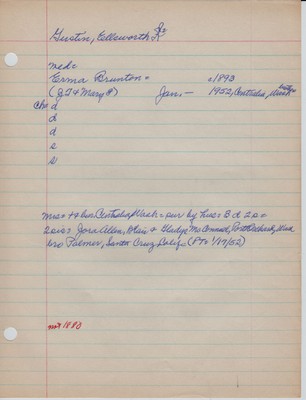 Gustin, Ellsworth
med=
Erma Brunton = c1893
(J T & Mary ) Jan, — 1952, Centralia, Wash
Ch d
d
d
s
s
Mrs = + d bur. Centralia, Wash = sur by hus = 3 d 2 s =
2 sis Jora Allen, Blair & Gladys McConnell, Port Wash
bro Palmer, Santa Cruz, Calif. (PTs 1/19/52)
mt 1880